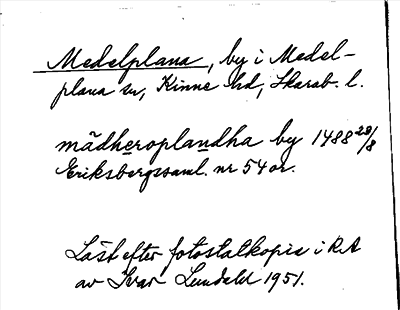 Medelplana, by i Medel-
plana sn, Kinne hd, Skarab. l.
mädheroplandha by 1488 28/8
Eriksbergssaml. nr 54 or.
Läst efter fotostatkopia i RA
av Ivar Lundahl 1951.